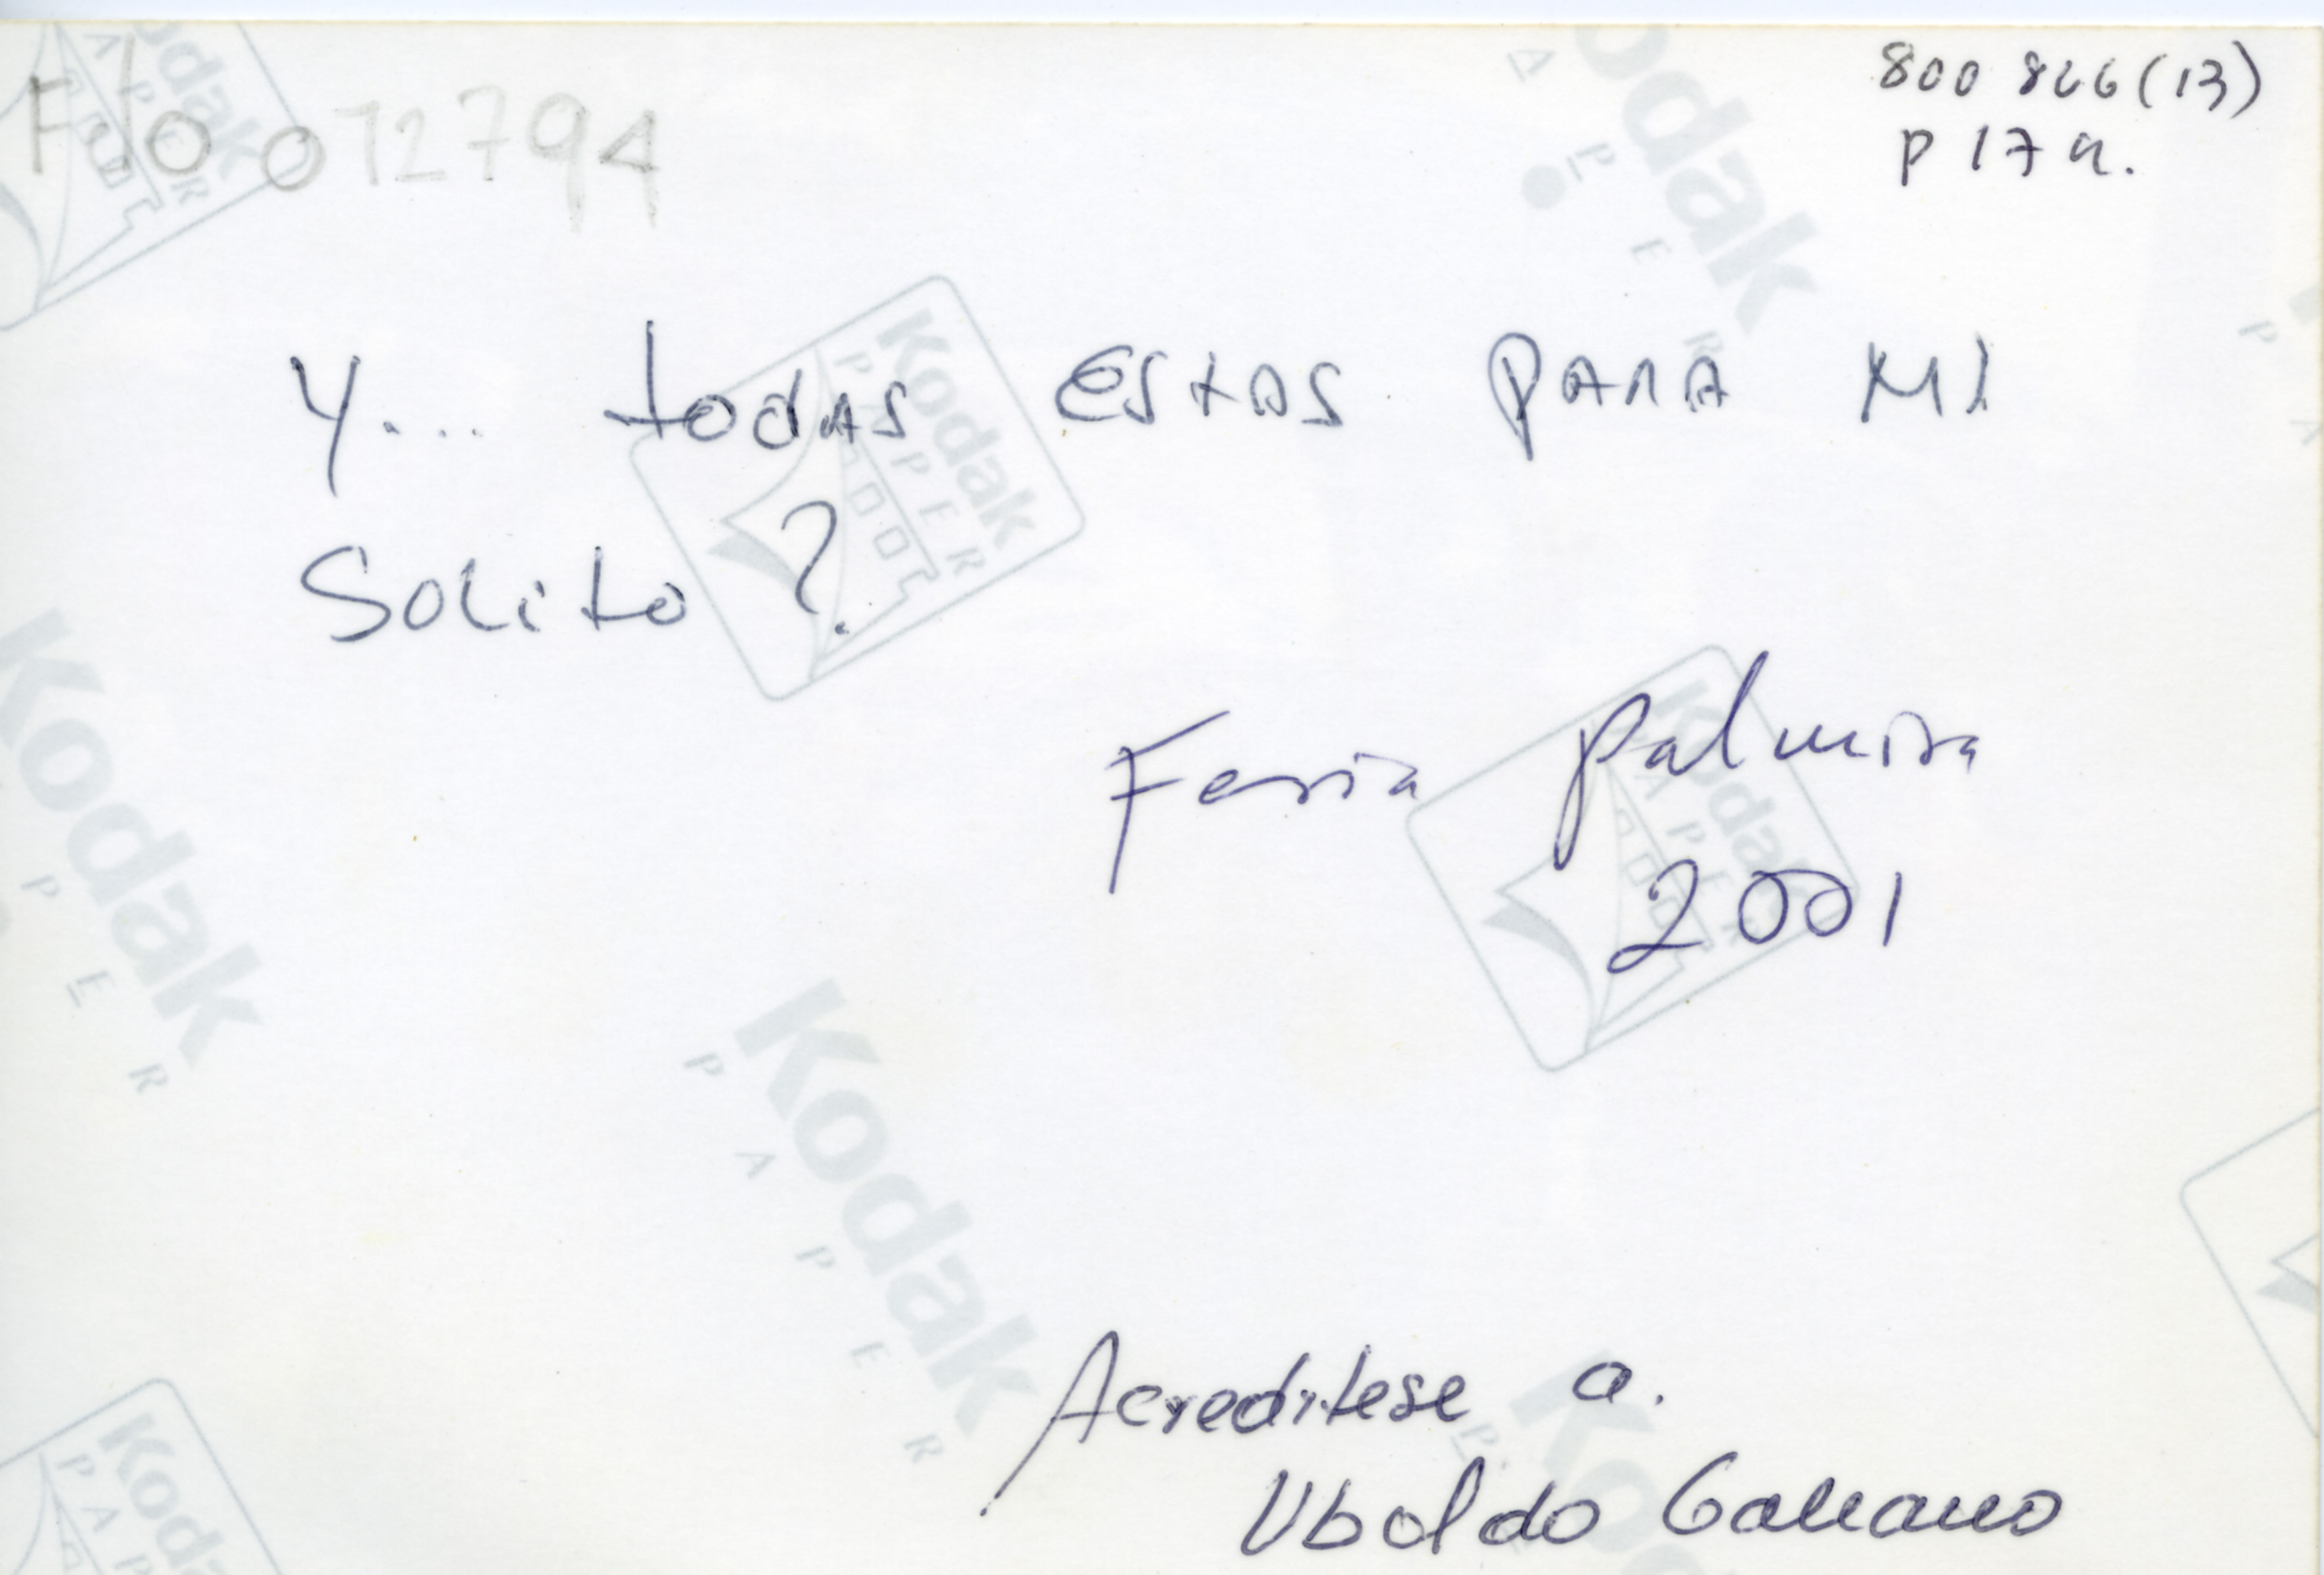 F/o 012794
800 826(13)
P 17 a.
Y... todas estas para mi
Solito ?
Feria Palmira
2001
Acreditese a.
Uboldo Galeano
Kodak
PAPER